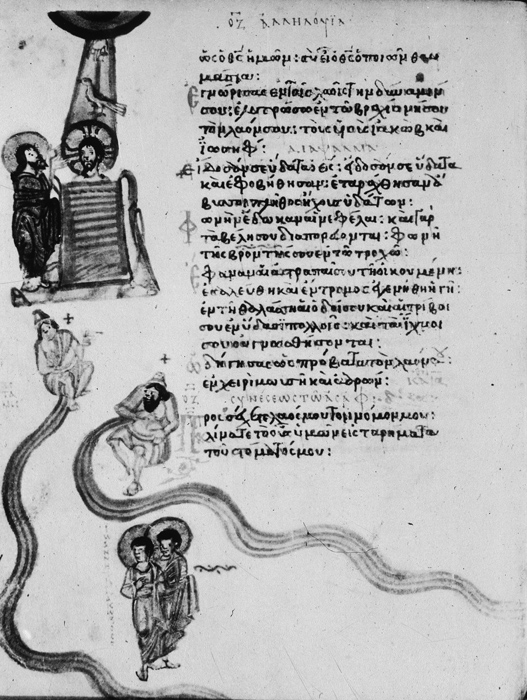 οζ ἀλληλούϊα
ὡς ὁ θς ἡμῶν: σὺ εἶ ὁ θς ὁ ποιῶν θαυ
μάσια:
Ἐγνώρισας ἐν τοῖς λαοῖς τὴν δύναμίν
σου: ἐλυτρώσω ἐν τῷ βραχίονί σου
τὸν λαόν σου: τοὺς υἱοὺς ἰακὼβ καὶ
ἰωσήφ: διάψαλμα
Εἴδοσάν σε ὕδατα ὁ θς: εἴδοσάν σε ὕδατα
καὶ ἐφοβήθησαν: ἐταράχθησαν ἄ
βυσσοι πλῆθος ἤχους ὑδάτων:
Φωνὴν ἔδωκαν αἱ νεφέλαι: καὶ γὰρ
τὰ βέλη σου διαπορεύονται: φωνὴ
τῆς βροντῆς σου ἐν τῷ τροχῷ:
Ἔφαναν αἱ ἀστραπαί σου τῇ οἰκουμένῃ:
ἐσαλεύθη καὶ ἔντρομος ἐγενήθη ἡ γῆ:
ἐν τῇ θαλάσσῃ αἱ ὁδοί σου καὶ αἱ τρίβοι
σου ἐν ὕδασι πολλοῖς: καὶ τὰ ἴχνη
σου οὐ γνωσθήσονται:
Ὡδήγησας ὡς πρόβατα τὸν λαόν σου:
ἐν χειρὶ μωυσῆ καὶ ἀαρών:
συνέσεως τῷ ἀσάφ
Προσέχετε λαός μου τὸν νόμον μου:
κλίνατε τὸ οὖς ὑμῶν εἰς τὰ ῥήματα
τοῦ στόματός μου: